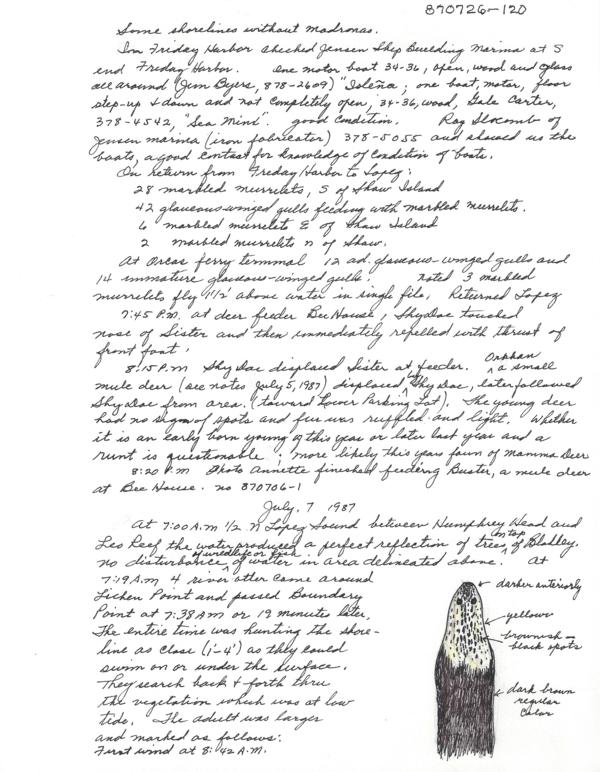 870726-120
Some shorelines without madronas.
In Friday Harbor checked Jensen Ship Building Marina at S
end Friday Harbor. One motor boat 34-36, open, wood and glass
all around (Jim Byers, 878-2609) "Isleña; one boat, motor, floor
step-up & down and not completely open, 34-36, wood, Gale Carter,
378-4542, "Sea Mink". good condition. Ray Slocomb of
Jensen marina (iron fabricator) 378-5055 and showed us the
boats, a good contact for knowledge of condition of boats.
On return from Friday Harbor to Lopez:
28 marbled murrelets, S of Shaw Island
42 glaucous-winged gulls feeding with marbled murrelets.
6 marbled murrelets E of Shaw Island
2 marbled murrelets n of Shaw.
At Orcas ferry terminal 12 ad. glaucous-winged gulls and
14 immature glaucous-winged gulls. noted 3 marbled
murrelets fly 1 1/2' above water in single file. Returned Lopez
7:45 P.M. at deer feeder Bee House, Shy Doe touched
nose of Sister and then immediately repelled with thrust of
front foot.
8:15 P.M Shy Doe displaced Sister at feeder. Orphan a small
mule deer (see notes July 5, 1987) displaced by Shy Doe, later followed
Shy Doe from area. (toward Lower Parking Lot). The young deer
had no signs of spots and fur was ruffled and light. Whether
it is an early born young of this year or later last year and a
runt is questionable; more likely this years fawn of Mamma Deer
8:20 P.M Photo Annette finished feeding Buster, a mule deer
at Bee House. no 870706-1
July, 7 1987
At 7:00 A.M 1/2 N Lopez Sound between Humphrey Head and
Leo Reef the water produced a perfect reflection of trees on top of Blakley.
no disturbance of wildlife or fish of water in area delineated above. At
7:19 A.M 4 river otter came around
Lichen Point and passed Boundary
Point at 7:38 AM or 19 minutes later.
The entire time was hunting the shore-
line as close (1'-4') as they could
swim on or under the surface.
They search back & forth thru
the vegetation which was at low
tide. The adult was larger
and marked as follows:
First wind at 8:42 A.M.
darker anteriorly
yellow
brownish-
black spots
dark brown
regular
color